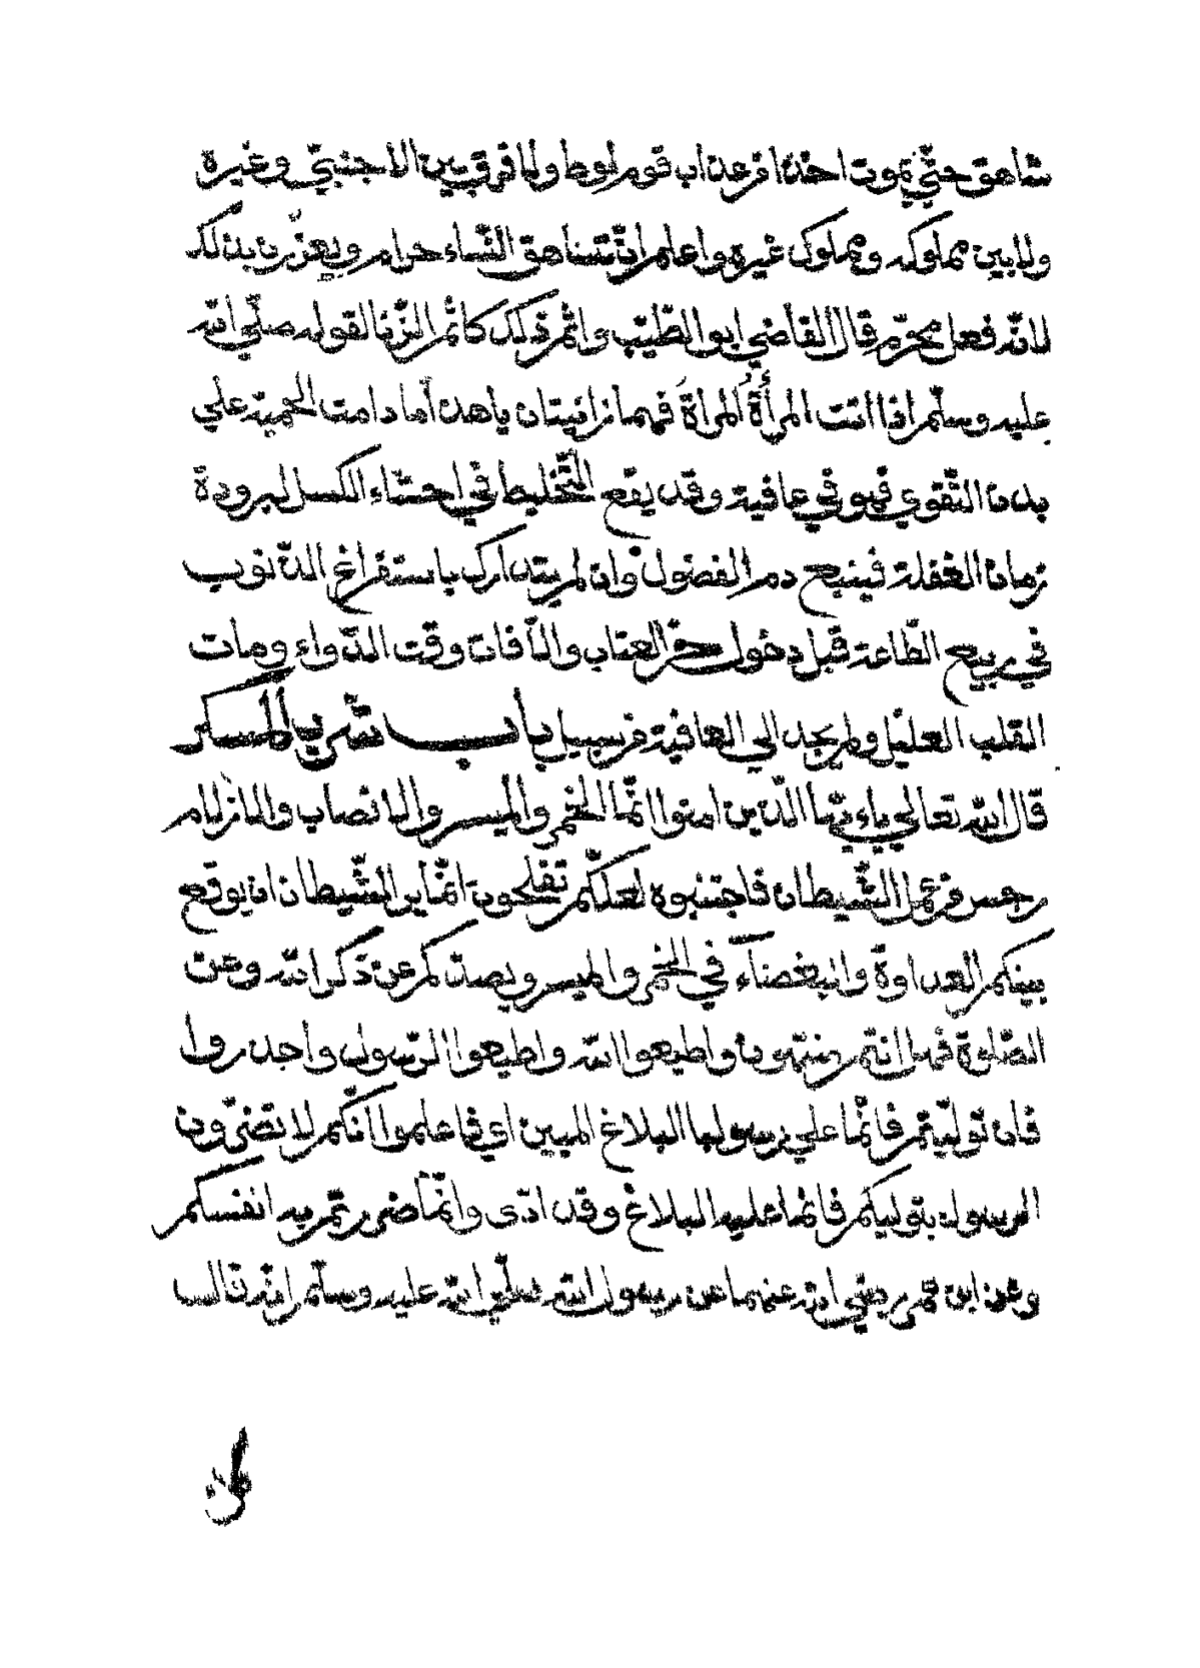 شاهق حتّي يموت اخذا من عذاب قوم لوط ولا فرق بين الاجنبيّ وغيره
ولا بين مملوكه ومملوك غيره واعلم انّ تساهق النّساء حرام ويعزّرن بذلك
لانّه فعل محرّم قال القاضي ابو الطّيّب واثم ذلك كاثم الزّنا لقوله صلّي الله
عليه وسلّم اذا اتت المرأةُ المرأةَ فهما زانيتان ياهذا ما دامت الحمية علي
بدن التّقوي فهو في عافية وقد يقع التّخليط في احشاء الكسل لبرودة
زمان الغفلة فينبع دم الفضول وان لم يتدارك باستفراغ الذّنوب
في ربيع الطّاعة قبل دخول حرّ العتاب والآفات وقت الدّواء ومات
القلب العليل ولم يجد الي العافية من سبيل باب شرب المسكر
قال الله تعالي ياءيّها الّذين امنوا انّما الخمر والميسر والانصاب والازلام
رجس من عمل الشّيطان فاجتنبوه لعلّكم تفلحون انّما يريد الشّيطان ان يوقع
بينكم العداوة والبغضآء في الخمر والميسر ويصدّكم عن ذكر الله وعن
الصّلوة فهل انتم منتهون واطيعوا الله واطيعوا الرّسول واحذروا
فان تولّيتم فانّما علي رسولنا البلاغ المبين اي فاعلموا انّكم لا تضرّون
الرسول بتوليكم فانما عليه البلاغ وقد ادّى وانّما ضررتم به انفسكم
وعن ابن عمر رضي الله عنهما عن رسول الله صلّي الله عليه وسلّم انّه قال
كل